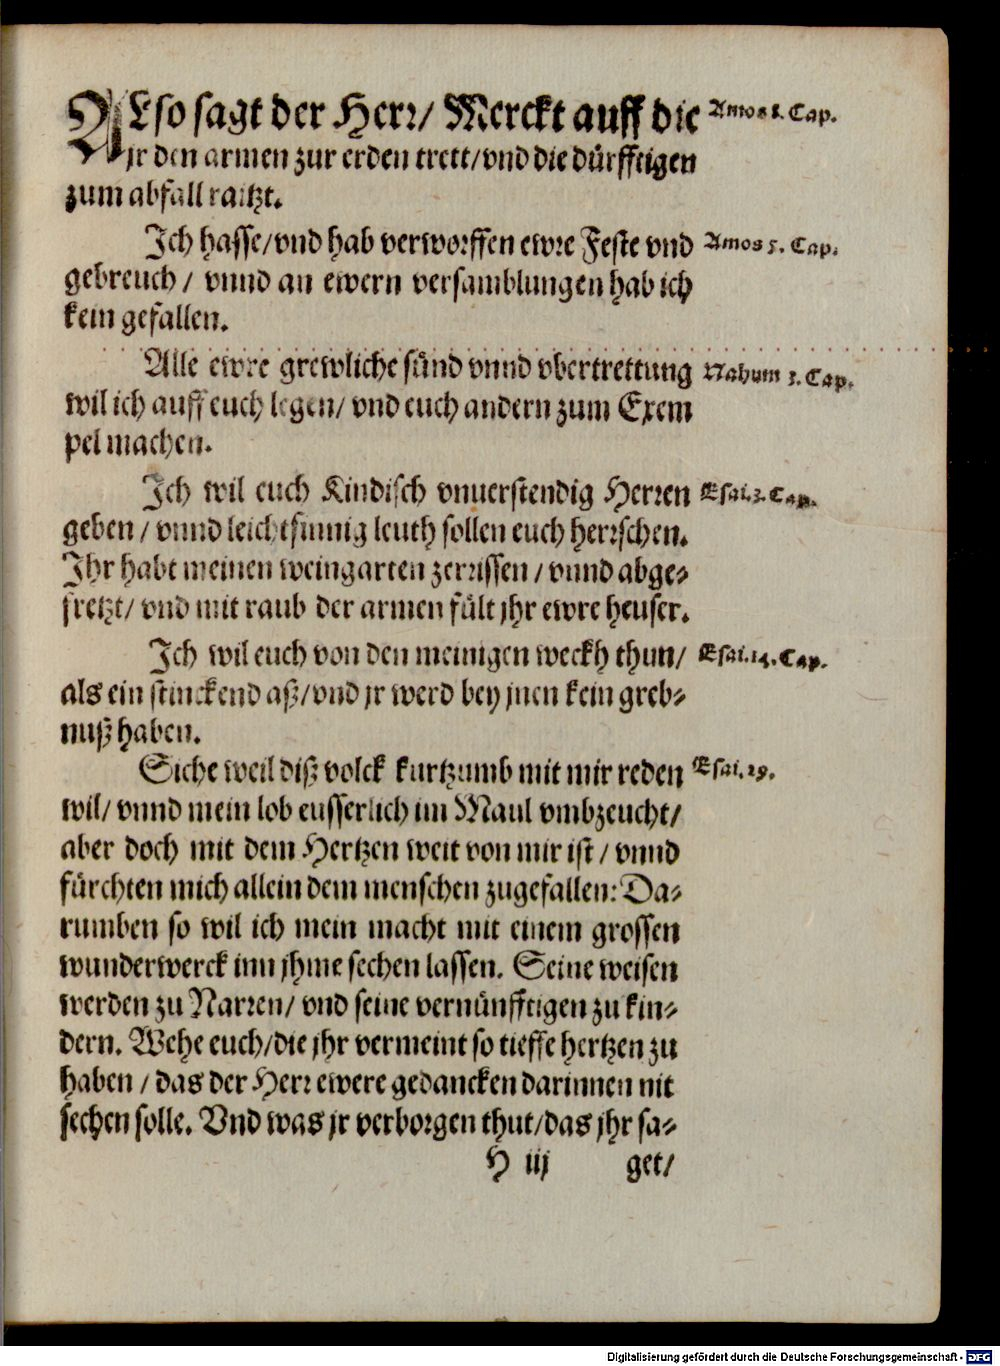 ALso sagt der Herr/ Merckt auff die
jr den armen zur erden trett/vnd die dürfftigen
zum abfall raitzt.
Amos 8. Cap.
Ich hasse/vnd hab verworffen ewre Feste vnd
gebreuch / vnnd an ewern versamblungen hab ich
kein gefallen.
Amos 5. Cap.
Alle ewre grewliche sünd vnnd vbertrettung
wil ich auff euch legen/ vnd euch andern zum Exem
pel machen.
Nahum 3. Cap.
Ich wil euch Kindisch vnuerstendig Herren
geben / vnnd leichtsinnig leuth sollen euch herrschen.
Ihr habt meinen weingarten zerrissen / vnnd abge-
fretzt/ vnd mit raub der armen fült jhr ewre heuser.
Esai. 3. Cap.
Ich wil euch von den meinigen weckh thun/
als ein stinckend aß/vnd jr werd bey jnen kein greb-
nuß haben.
Esai. 14. Cap.
Siche weil diß volck kurtzumb mit mir reden
wil/ vnnd mein lob eusserlich im Maul vmbzeucht/
aber doch mit dem Hertzen weit von mir ist / vnnd
fürchten mich allein dem menschen zugefallen: Da-
rumben so wil ich mein macht mit einem grossen
wunderwerck inn jhme sechen lassen. Seine weisen
werden zu Narren/ vnd seine vernünfftigen zu kin-
dern. Wehe euch/die jhr vermeint so tieffe hertzen zu
haben / das der Herr ewere gedancken darinnen nit
sechen solle. Vnd was jr verborgen thut/das jhr sa-
Esai. 29.
H iij get/
Digitalisierung gefördert durch die Deutsche Forschungsgemeinschaft - DFG